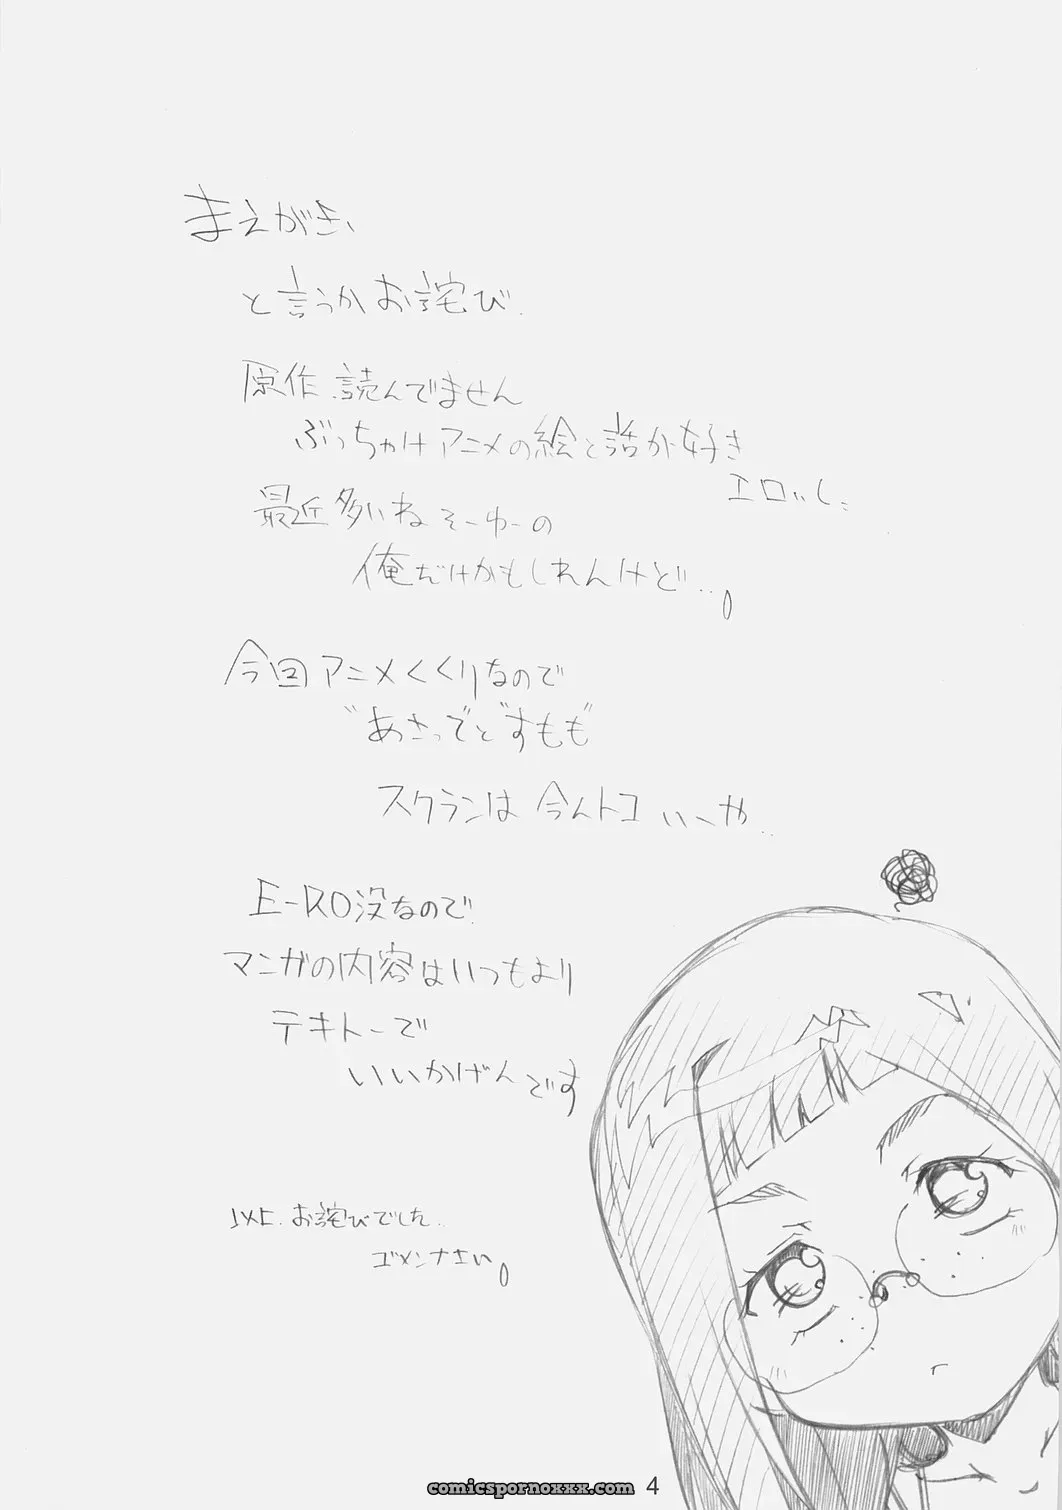 まえがき、
と言うかお詫び.
原作.読んでません
ぶっちゃけアニメの絵と話が好き
エロいし、
最近多いねそーゆーの
俺だけかもしれんけど...。
今回アニメくくりなので
"あさっで"ど"すもも"
スクランは今んトコいーや..
E-RO没なので
マンガの内容はいつもより
テキトーで
いいかげんです
以上.お詫びでした..
ゴメンナさい。
comicspornoxxx.com 4